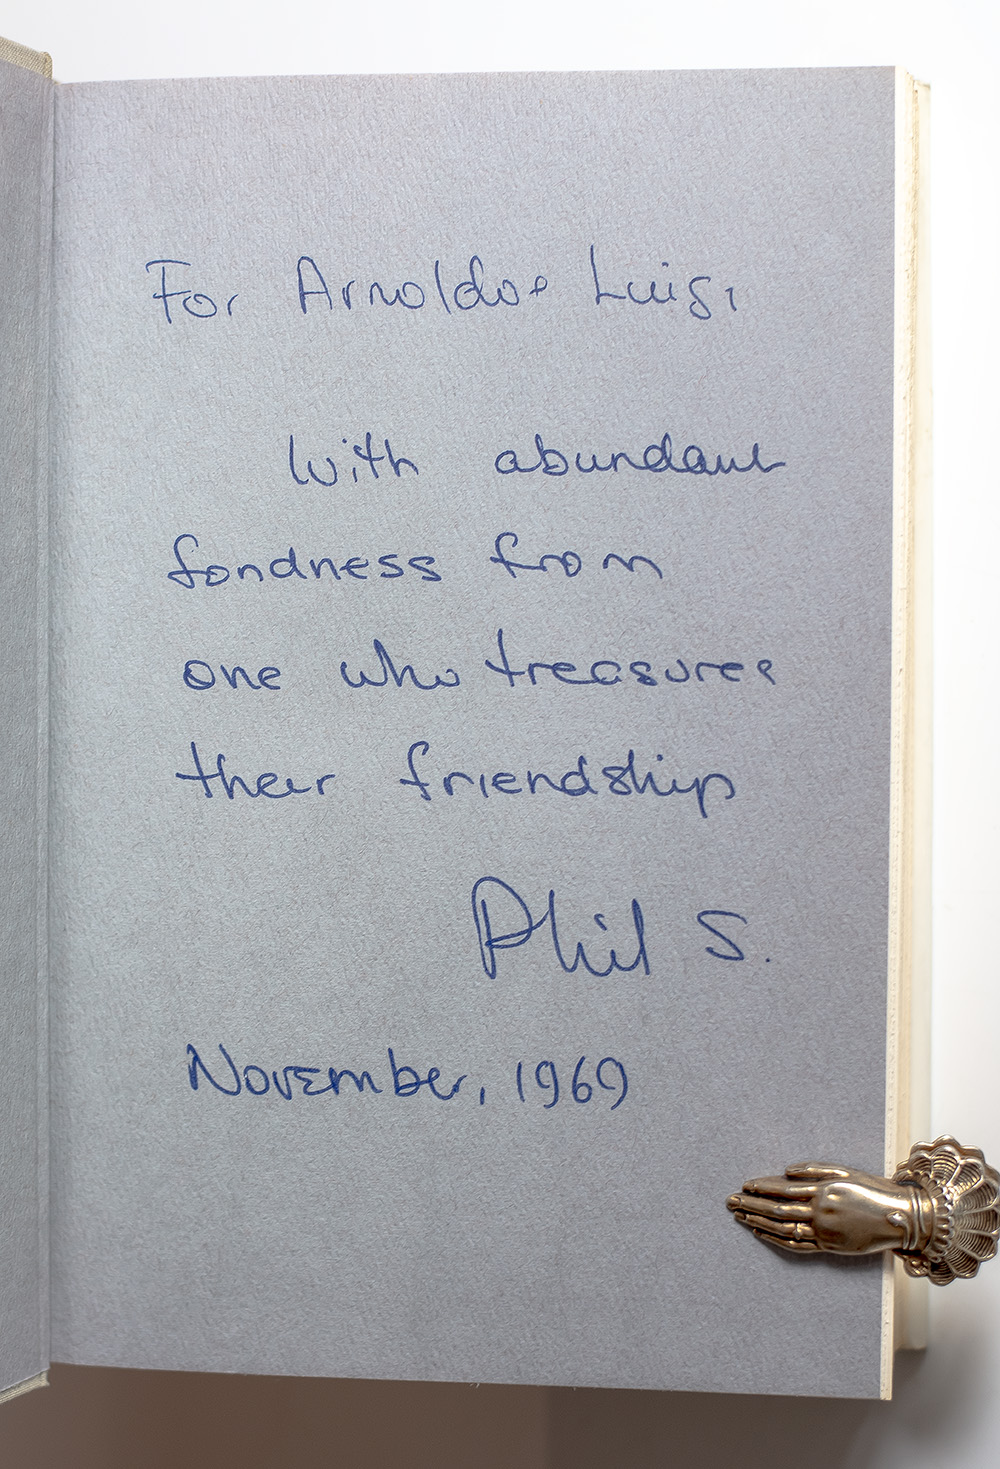 For Arnoldo e Luigi
With abundant
fondness from
one who treasures
their friendship
Phil S.
November, 1969